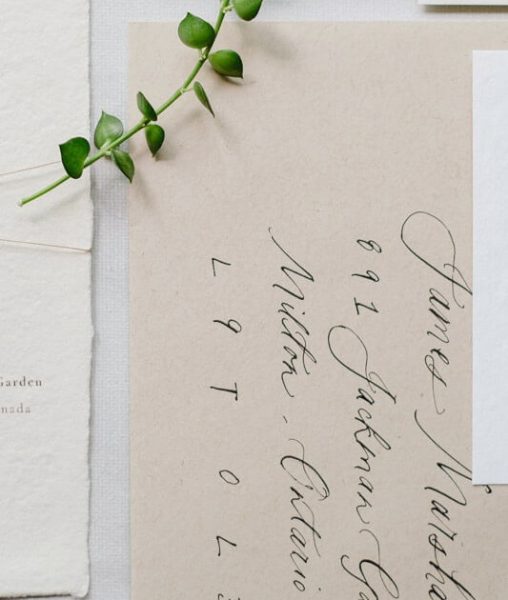 Garden
nada
James Marsha
891 Jackman Ga
Milton, Ontario
L 9 T 0 L